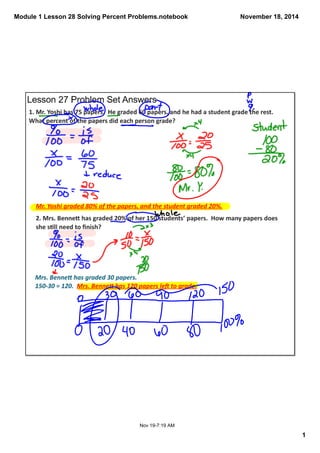 Module 1 Lesson 28 Solving Percent Problems.notebook
November 18, 2014
Lesson 27 Problem Set Answers
P
whole
part
1. Mr. Yoshi has 75 papers. He graded 60 papers, and he had a student grade the rest.
What percent of the papers did each person grade?
%/100 = is/of
x/100 = 60/75
↓ reduce
x/100 = 20/25
x4
x/100 = 20/25
x4
80/100 = 80%
Mr. Y.
Student
100
- 80
20%
Mr. Yoshi graded 80% of the papers, and the student graded 20%.
whole
2. Mrs. Bennett has graded 20% of her 150 students' papers. How many papers does
she still need to finish?
%/100 = is/of
20/100 = x/150
10/50 = x/150
x3
30/150
Mrs. Bennett has graded 30 papers.
150-30 = 120. Mrs. Bennett has 120 papers left to grade.
0 30 60 90 120 150
0 20 40 60 80 100%
Nov 19-7:19 AM
1